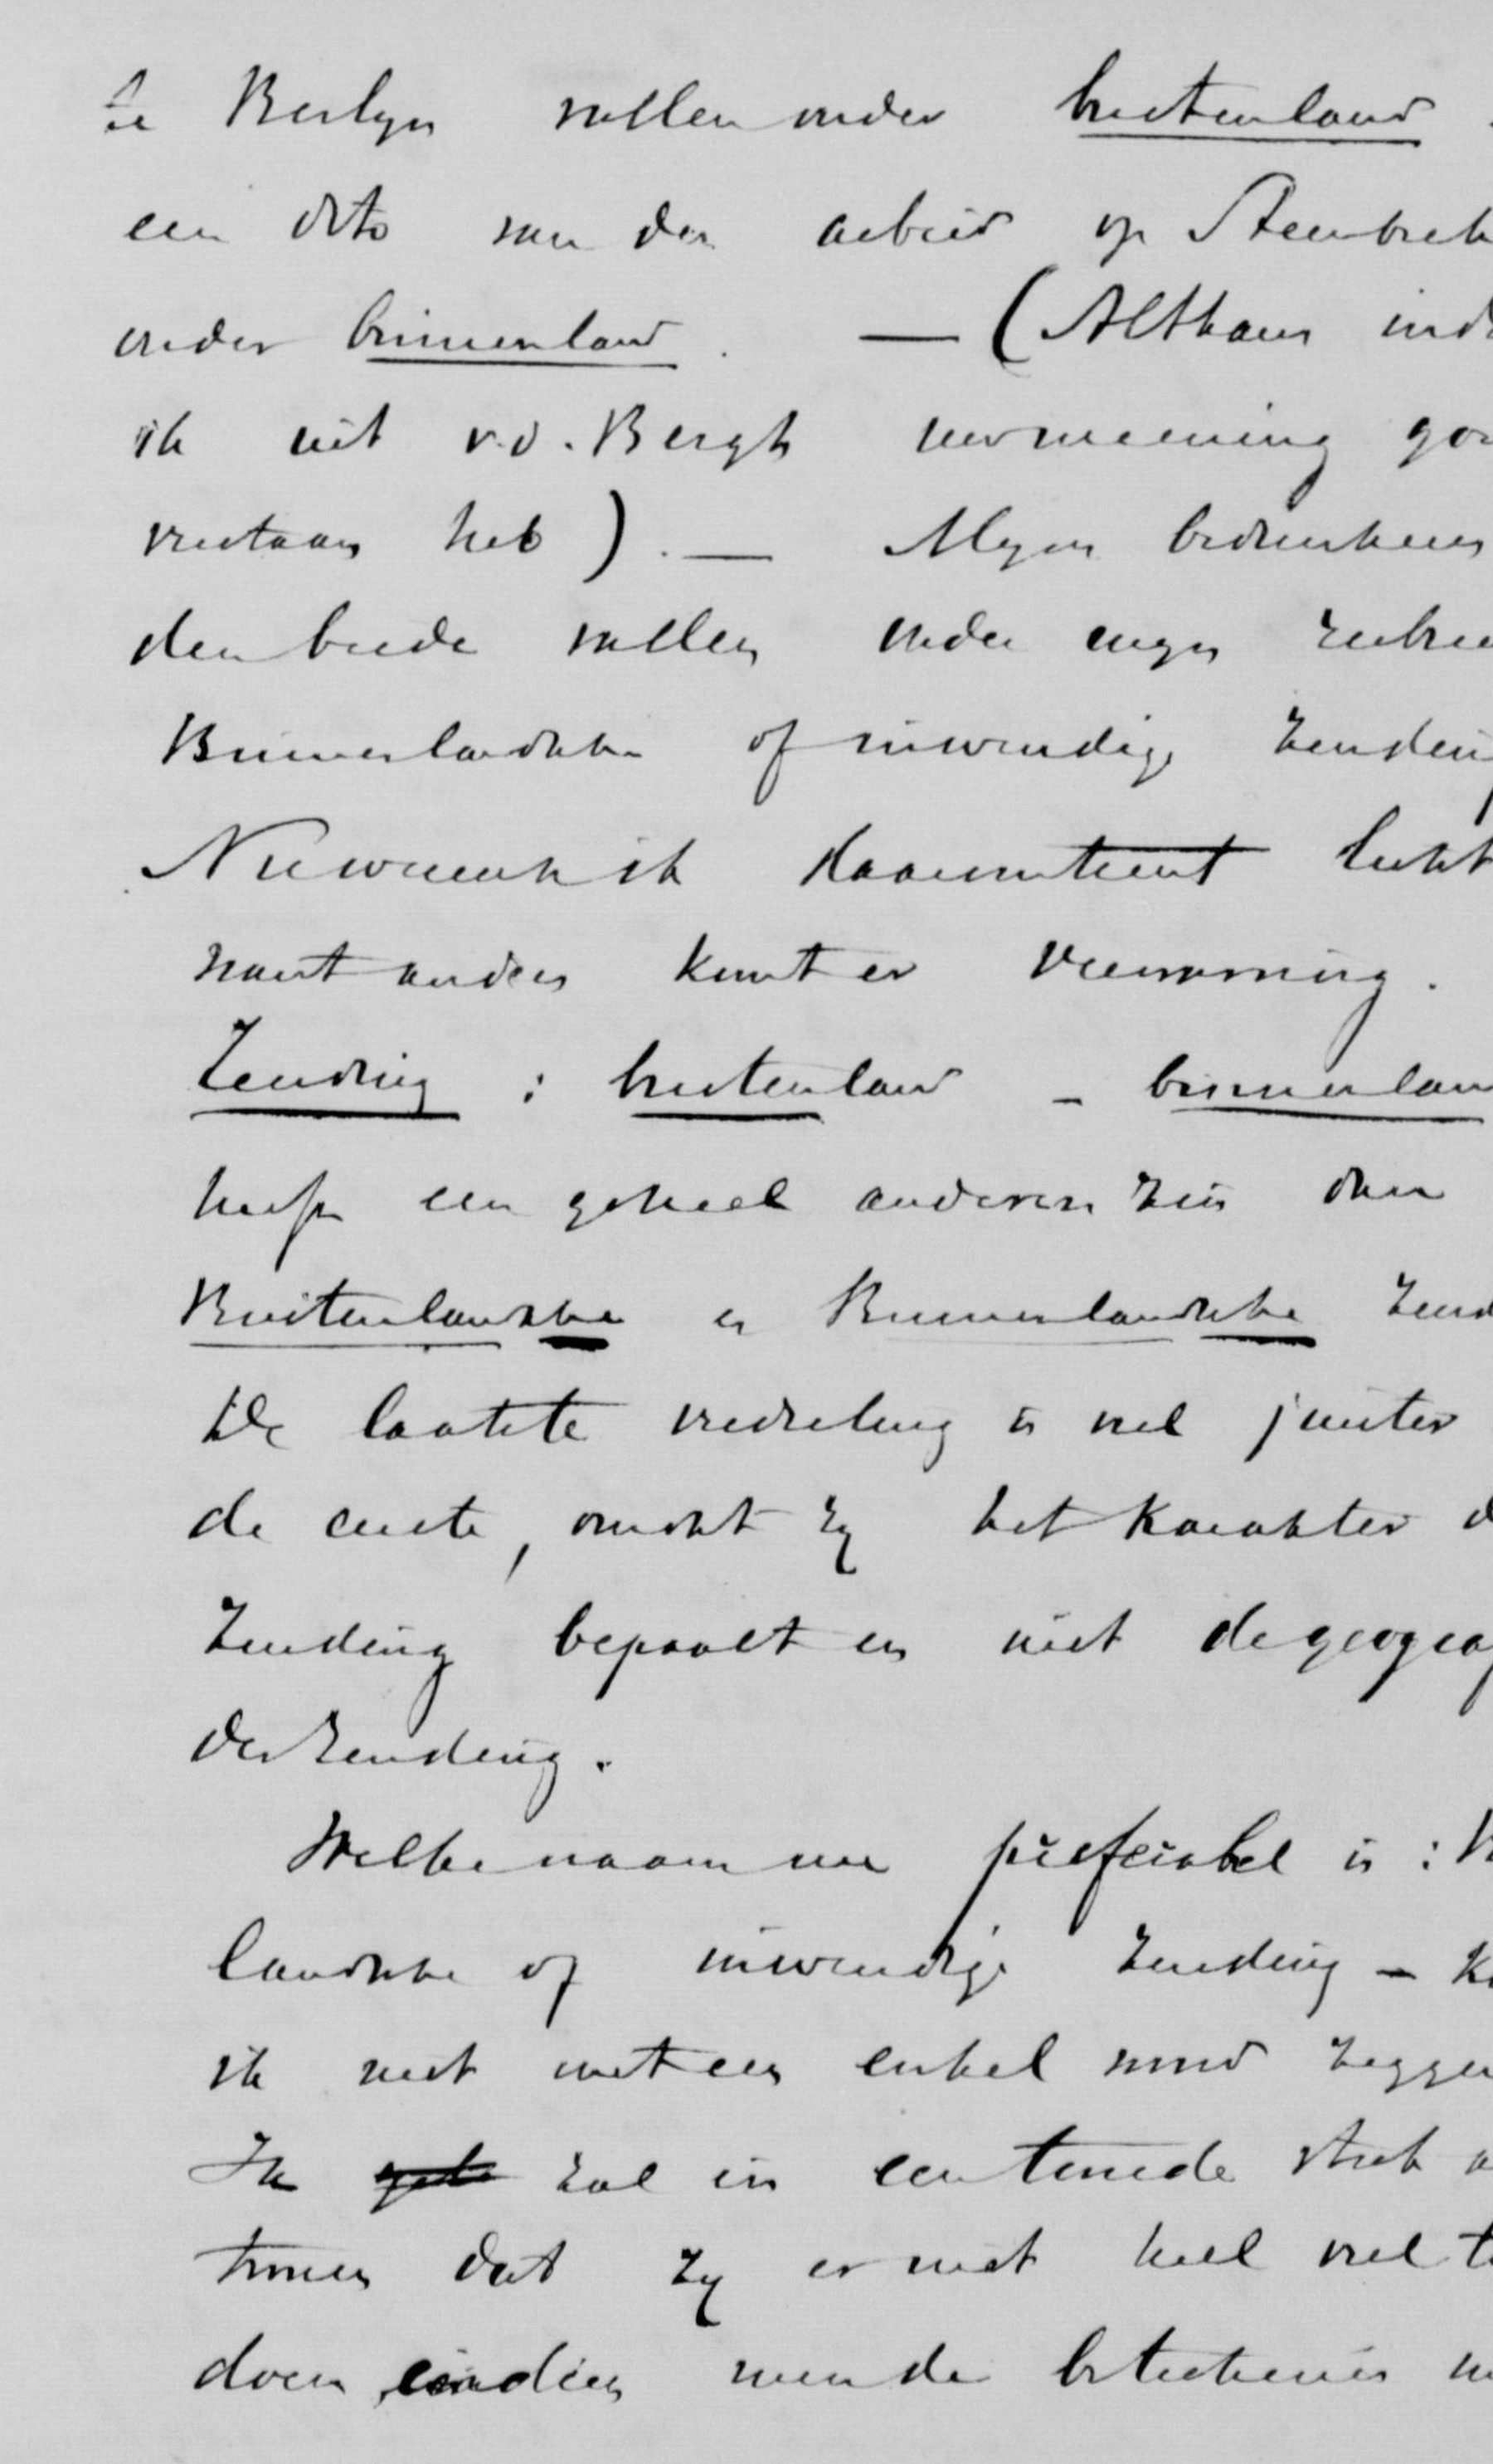 te Berlyn vallen onder buitenland
een dito van den arbeid op Steenbeek
onder binnenland. — (Althans ind
ik uit v.d. Bergh's meening goe
verstaan heb). — Mijns bedunkens
den beide vallen onder myn rubrie
Binnenlandsche of inwendige Zending
Nieuwenh ik daaromtrent
want anders komt er verwarring.
Zending : buitenland - binnenlan
heeft een geheel anderen zin dan
Buitenlandsche en Binnenlandsche Zend
De laatste verdeeling is veel juister
de eerste, omdat zy het karakter d
Zending bepaalt en niet de geograp
der Zending.
Welke naam nu preferabel is : B
landsche of inwendige Zending - k
ik niet met een enkel woord zeggen
Ik zal in een tweede stuk a
toonen dat zy er niet heel veel t
doen, indien men de beteekenis m